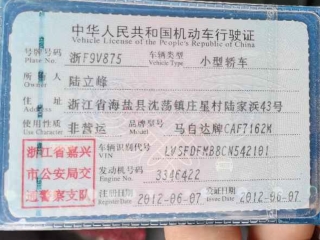 中华人民共和国机动车行驶证
Vehicle License of the People's Republic of China
号牌号码 浙F9V875 车辆类型 小型轿车
Plate No. Vehicle Type
所有人 陆立峰
Owner
住址 浙江省海盐县沈荡镇庄星村陆家浜43号
Address
使用性质 非营运 品牌型号 马自达牌CAF7162M
Use Character Model
浙江省嘉兴
市公安局交
通警察支队
车辆识别代号 LVSFDFMB8CN542101
VIN
发动机号码 3346422
Engine No.
注册日期 2012-06-07 发证日期 2012-06-07
Register Date Issue Date